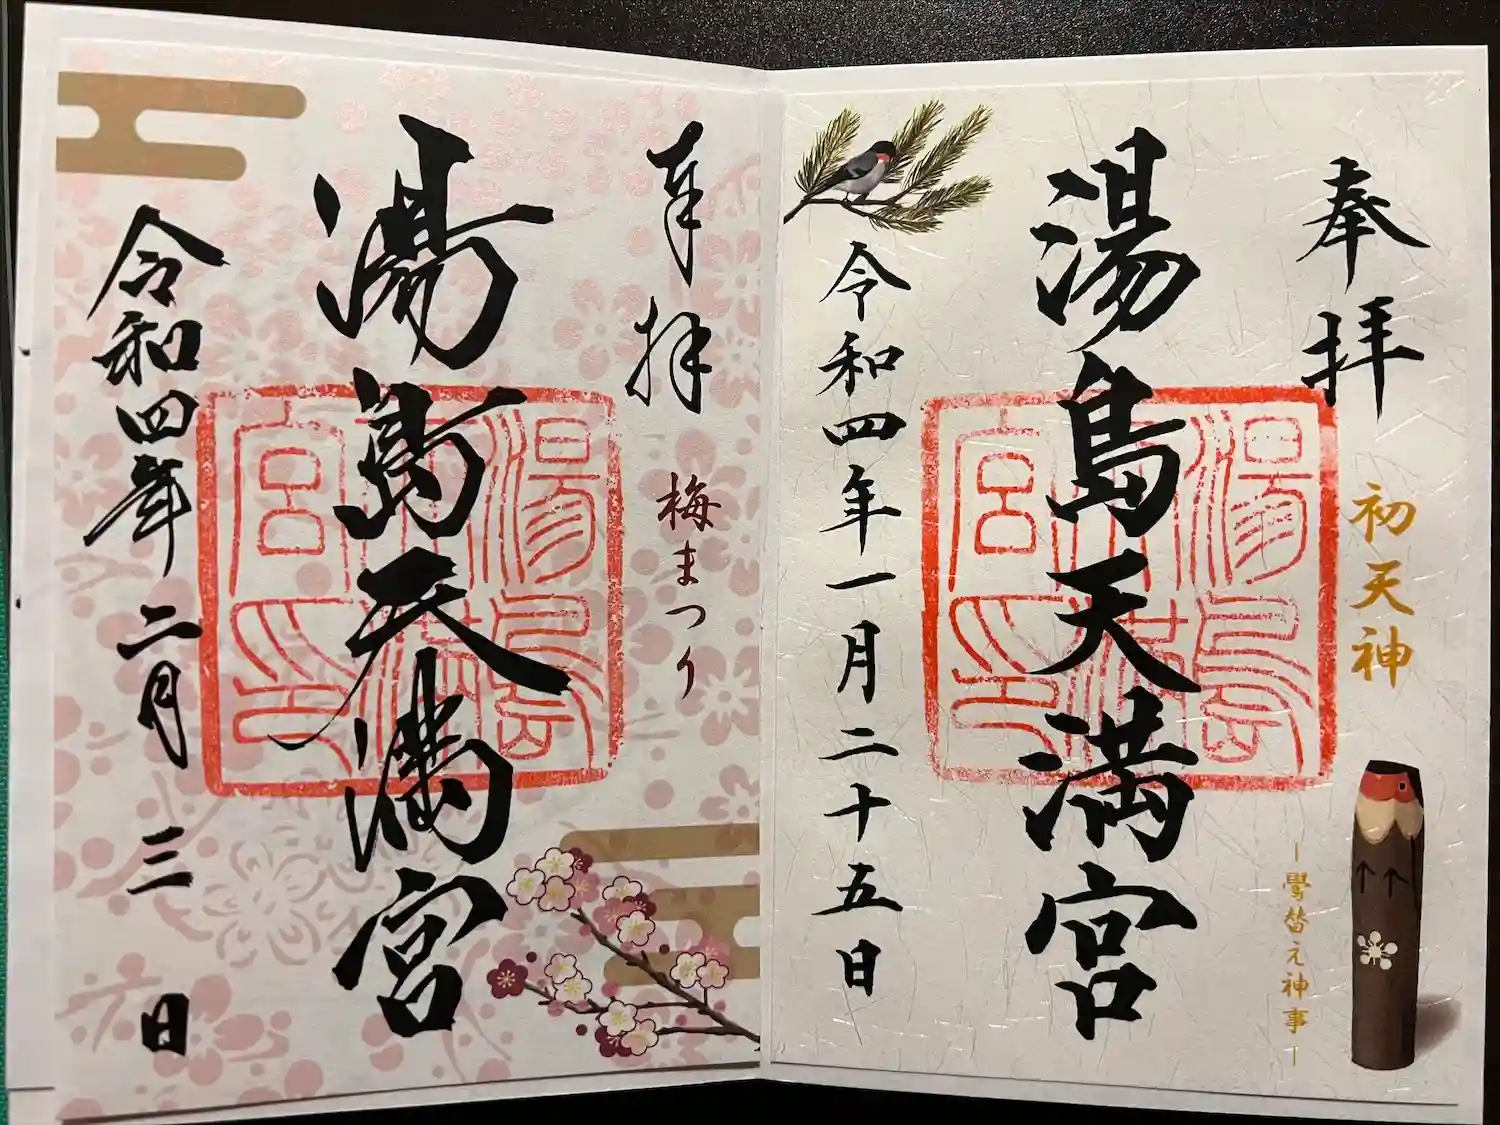 奉拝
初天神
-鷽替え神事-
湯島天満宮
令和四年一月二十五日
湯島天満宮印
奉拝
梅まつり
湯島天満宮
令和四年二月三日
湯島天満宮印